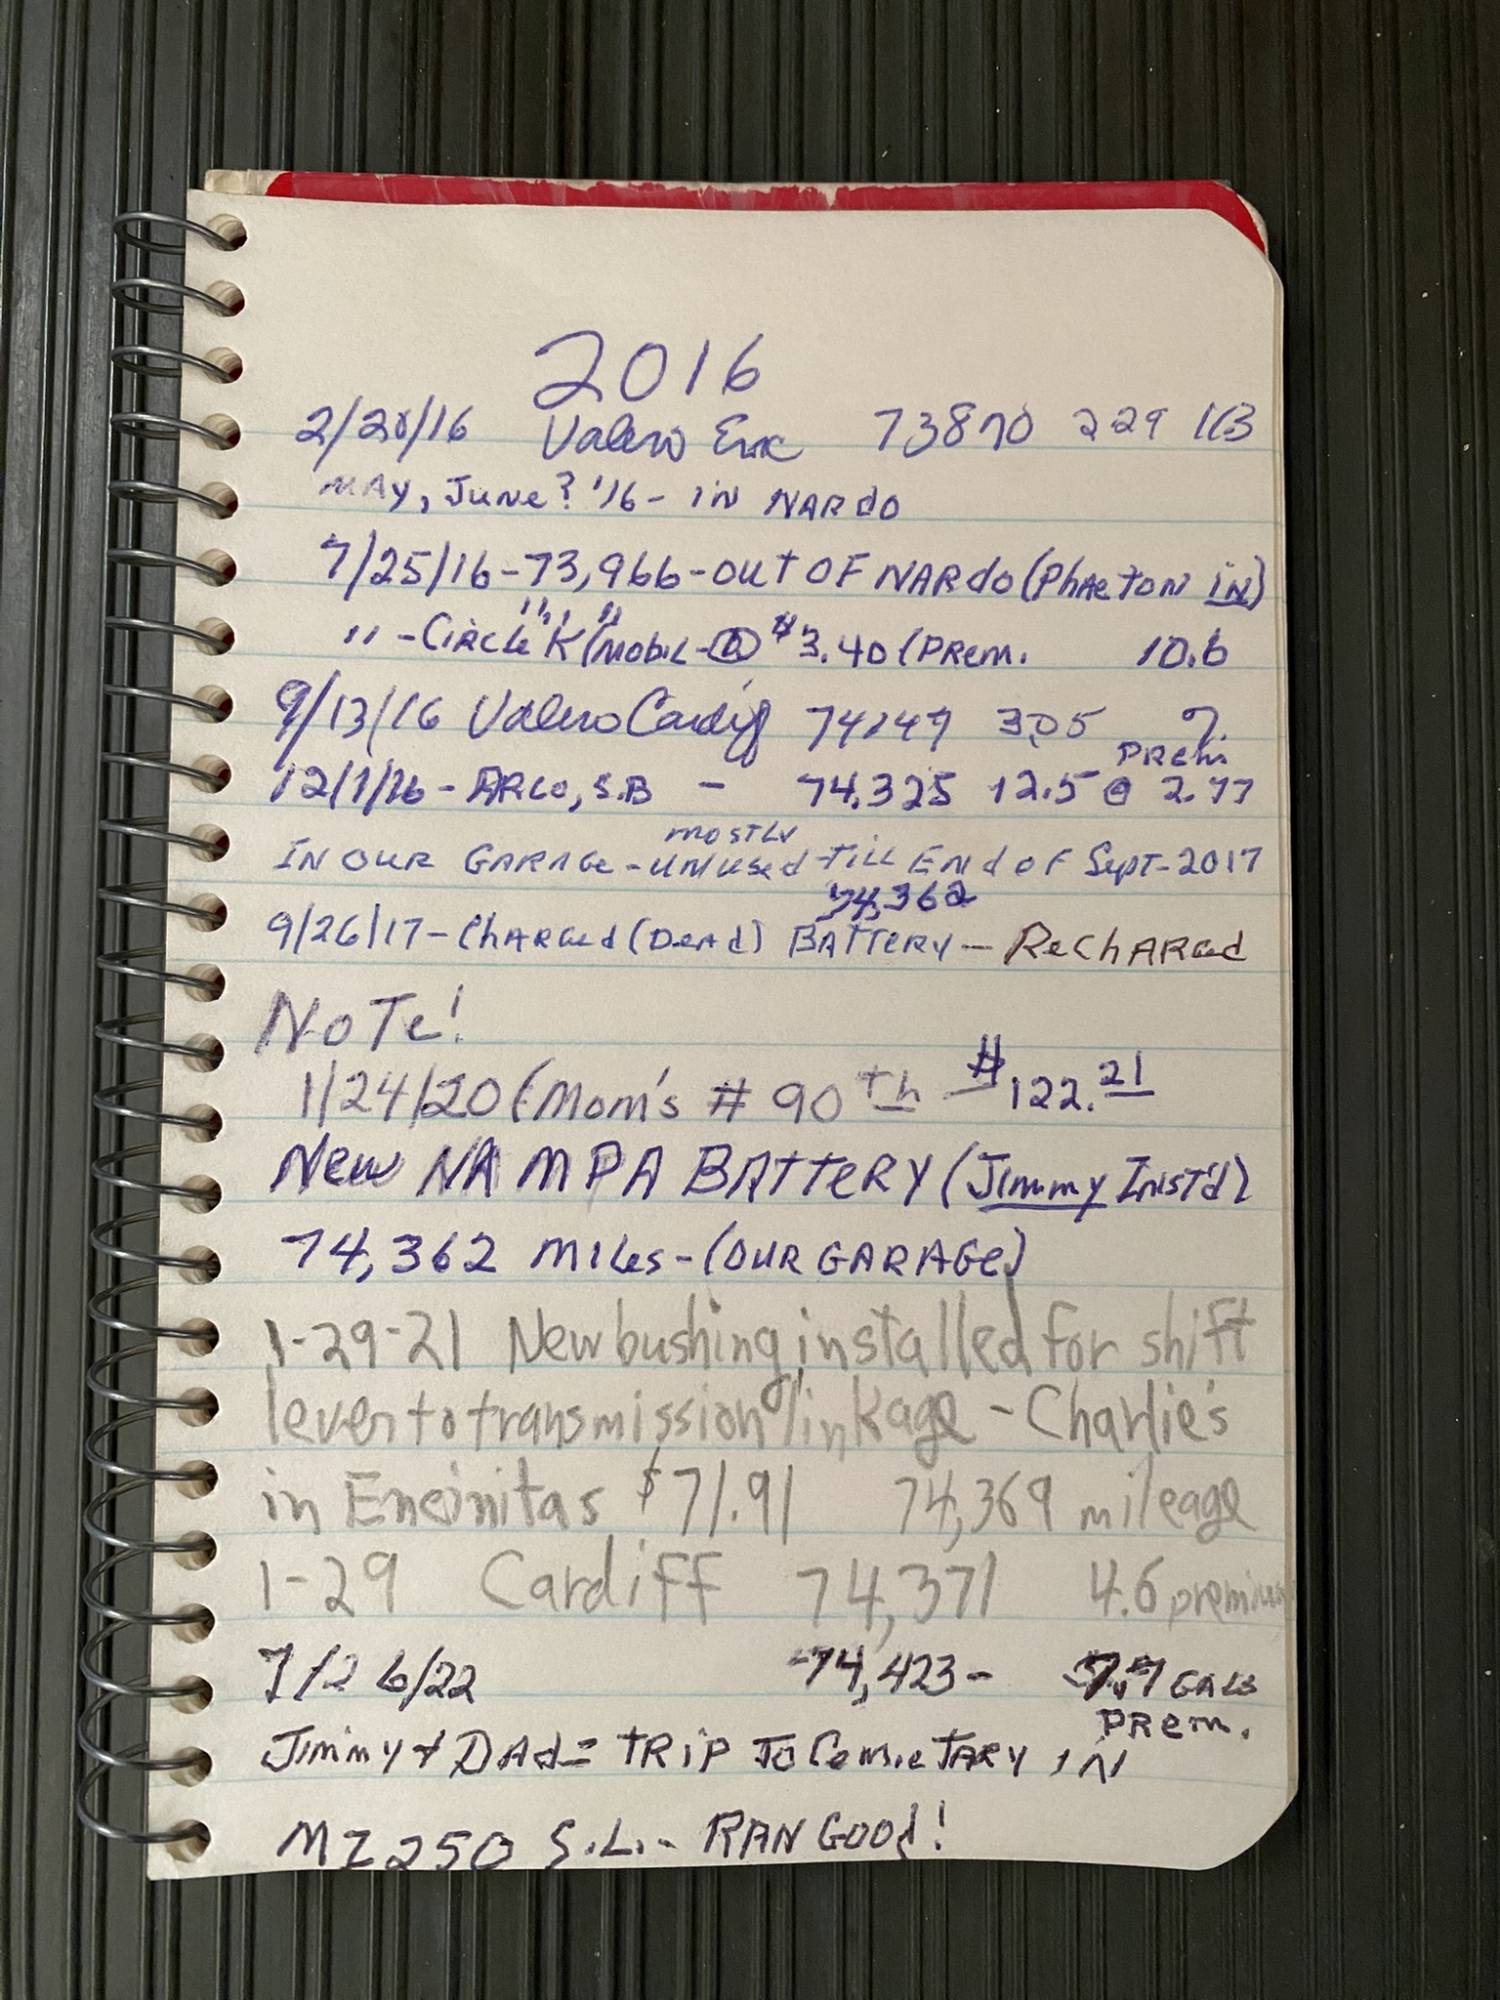 2016
2/20/16 Valero Enc 73870 229 113
MAY, June? '16 - IN NARDO
7/25/16 - 73,966 - OUT OF NARDO (PhAeTON IN)
" - CIRCLE K (MOBIL - @ $3.40 (PREM. 10.6
9/13/16 Valero Cardiff 74249 305 ?
PREM
12/1/16 - ARCO, S.B - 74,325 12.5 @ 2.77
MOSTLY
IN OUR GARAGE - UNUSED TILL END OF Sept - 2017
74,362
9/26/17 - ChARGed (DeAd) BATTERY - ReChARGed
NOTe!
1/24/20 (Mom's # 90th - $122.21
New NAMPA BATTeRY (Jimmy INST'd)
74,362 MILes - (OUR GARAGe)
1-29-21 New bushing installed for shift
lever to transmission linkage - Charlie's
in Encinitas $71.91 74,369 mileage
1-29 Cardiff 74,371 4.6 premium
7/26/22 74,423 - 7.7 GALS
PRem.
Jimmy + DAd = TRIP TO CemieTARY IN
MZ 250 S.L. - RAN GOOd!